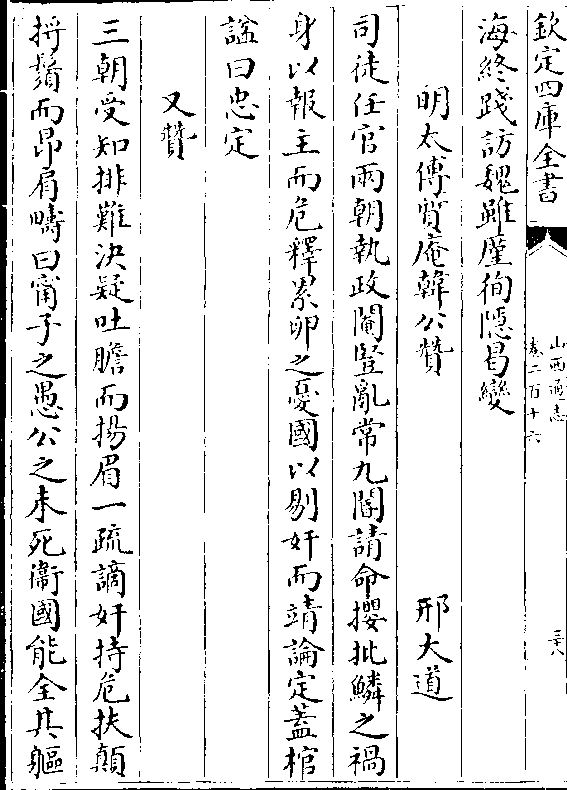 欽定四庫全書
山西通志
卷二百十六
三十八
海終踐訪魏雖廑徇隱曷變
明太傅質庵韓公贊 邢大道
司徒任官兩朝執政閹豎亂常九閽請命攖批鱗之禍
身以報主而危釋累卵之憂國以剔奸而靖論定蓋棺
諡曰忠定
又贊
三朝受知排難決疑吐膽而揚眉一疏謫奸持危扶顛
捋鬚而昂肩疇曰甯子之愚公之未死衞國能全其軀